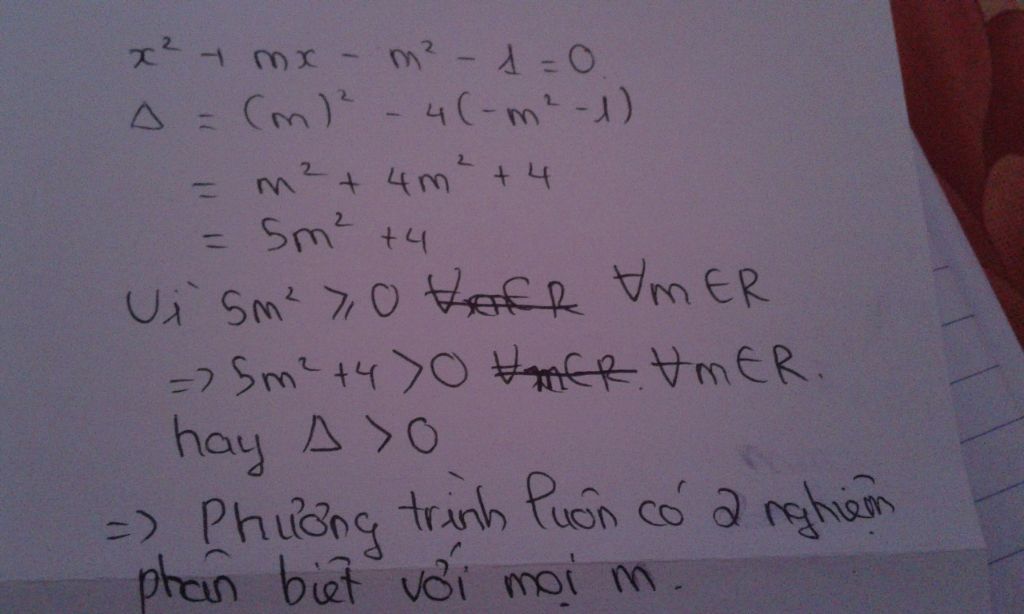 x² + mx - m² - 1 = 0.
Δ = (m)² - 4(-m² - 1)
= m² + 4m² + 4
= 5m² + 4
Vì 5m² ≥ 0 ∀m∈R ∀m∈R
=> 5m² + 4 > 0 ∀m∈R. ∀m∈R.
hay Δ > 0
=> Phương trình luôn có 2 nghiệm
phân biệt với mọi m.